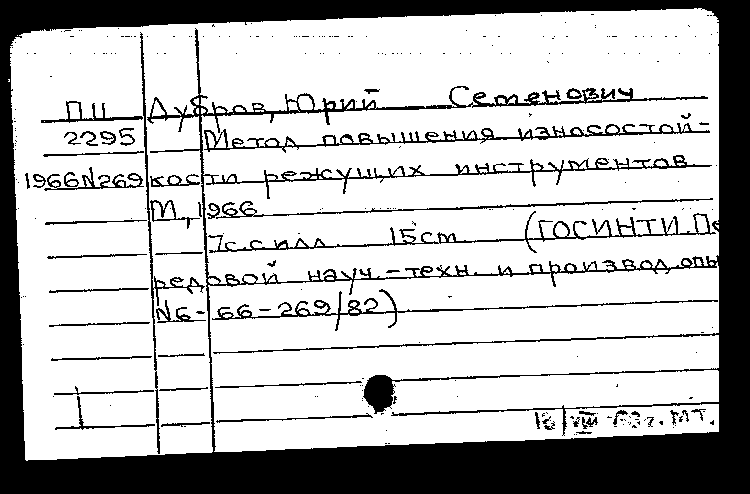 ПЦ Дубров, Юрий Семенович
2295 Метод повышения износостой-
1966N269 кости режущих инструментов
М., 1966
7с. с илл. 15cm (ГОСИНТИ. Пе
редовой науч.-техн. и производ. опы
N6-66-269/82)
VIII МТ.